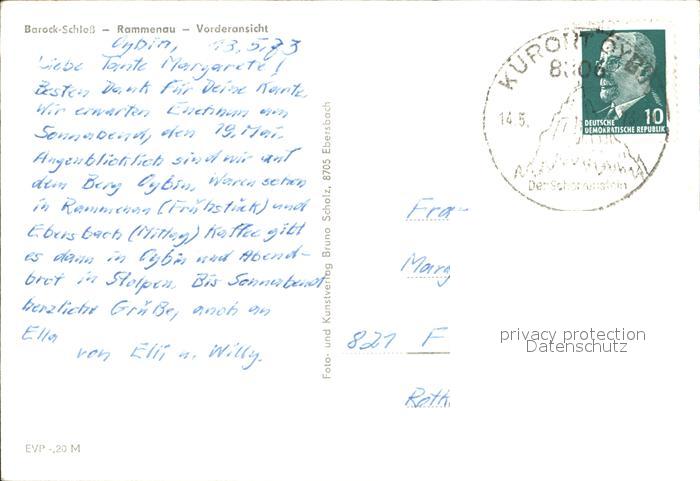 Barock-Schloß – Rammenau – Vorderansicht
Oybin, 13.5.73
Liebe Tante Margarete!
Besten Dank für Deine Karte.
Wir erwarten Euch nun am
Sonnabend, den 19. Mai.
Augenblicklich sind wir auf
dem Berg Oybin. Waren schon
in Rammenau (Frühstück) und
Ebersbach (Mittag) Kaffee gibt
es dann in Oybin und Abend-
brot in Stolpen. Bis Sonnabend
herzliche Grüße, auch an
Ella
von Elli u. Willy.
EVP -,20 M
Foto- und Kunstverlag Bruno Scholz, 8705 Ebersbach
KURORT OYBIN
8806
14.5.
Der Scharfenstein
10
DEUTSCHE
DEMOKRATISCHE REPUBLIK
Frau
Marg
821 F
Roth
privacy protection
Datenschutz